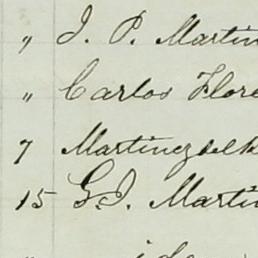 " J. P. Martin
" Carlos Flore
7 Martinez
15 G. J. Marti